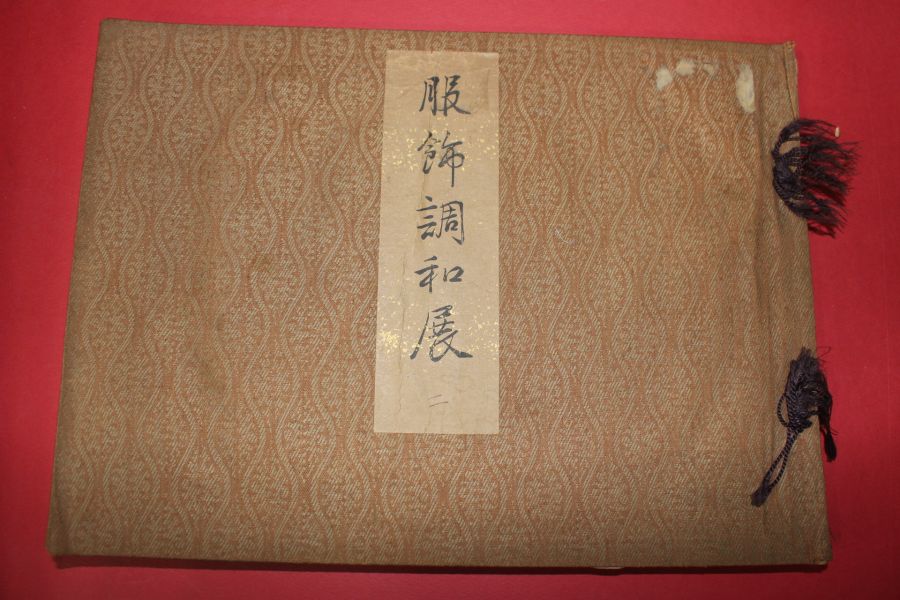 服飾調和展
二